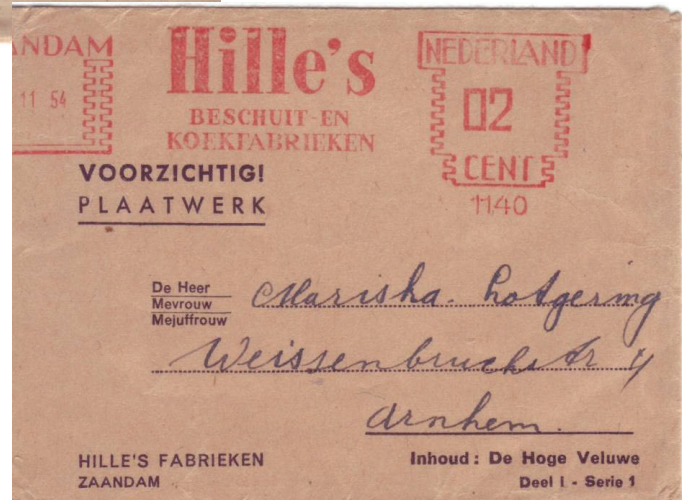 ANDAM
11 54
Hille's
BESCHUIT-EN
KOEKFABRIEKEN
NEDERLAND
02
CENT
1140
VOORZICHTIG!
PLAATWERK
De Heer
Mevrouw
Mejuffrouw
Mariska Lotgering
Weissenbruchstr 4
Arnhem.
HILLE'S FABRIEKEN
ZAANDAM
Inhoud: De Hoge Veluwe
Deel I - Serie 1